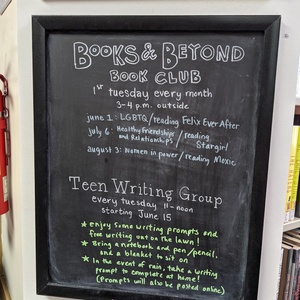 BOOKS & BEYOND
BOOK CLUB
1st tuesday every month
3-4 p.m. outside
june 1: LGBTQ/reading Felix Ever After
july 6: Healthy Friendships and Relationships / reading Stargirl
august 3: Women in power/reading Moxie
Teen Writing Group
every tuesday 11-noon
starting June 15
* enjoy some writing prompts and
free writing out on the lawn!
* Bring a notebook and pen/pencil,
and a blanket to sit on
* In the event of rain, take a writing
prompt to complete at home!
(prompts will also be posted online)